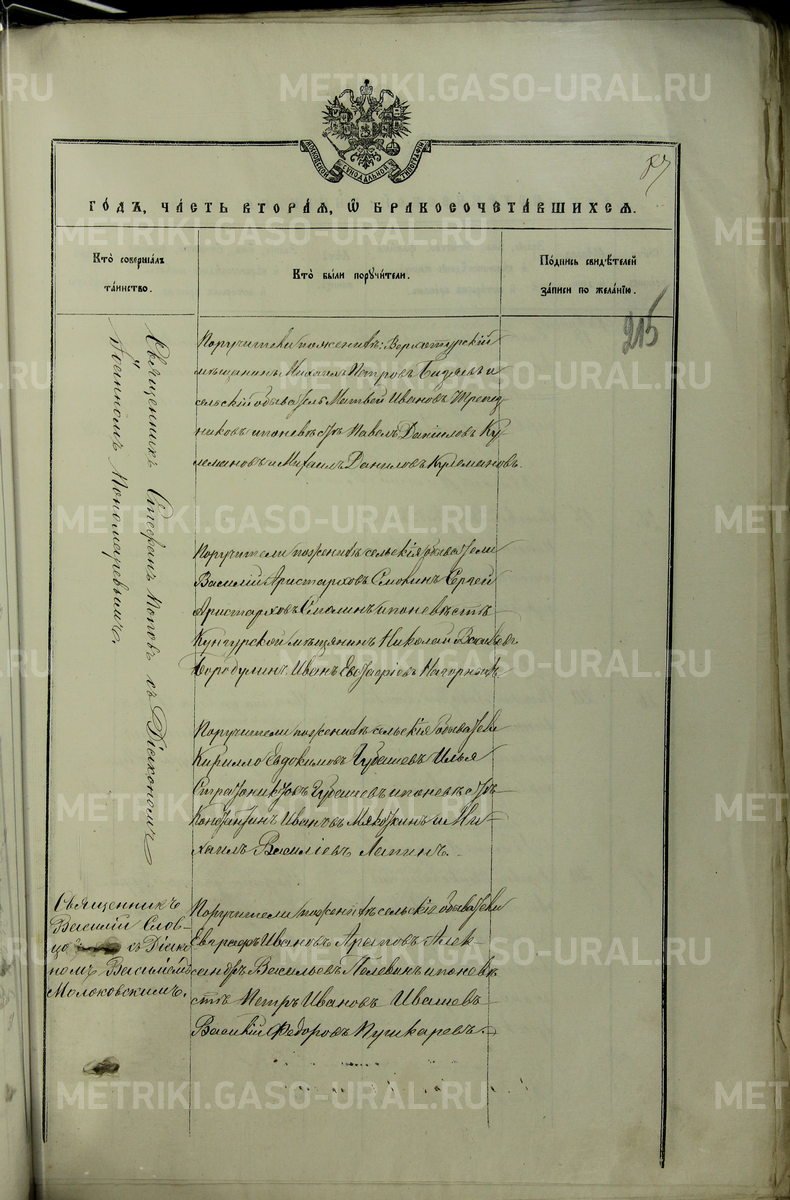 METRIKI.GASO-URAL.RU
МОСКОВСКОЙ СѴНОДАЛЬНОЙ ТИПОГРАФІИ
87
ГО́ДЪ, ЧА́СТЬ ВТОРА́Я, Ѡ БРАКОСОЧЕТА́ВШИХСЯ.
Кто̀ соверша́лъ та́инство.
Кто̀ бы́ли поручи́тели.
По́дпись свидѣ́телей за́писи по жела́нію.
215
Священникъ Стефанъ Поповъ съ Діакономъ
Іоанномъ Пономаревымъ
Поручители по женихѣ: Верхотурскій
мѣщанинъ Михаилъ Петровъ и
сельскій обыватель Матвей Ивановъ
никовъ и по невѣстѣ Павелъ Даниловъ Ку
лемановъ и Михаилъ Даниловъ Кулемановъ.
Поручители по женихѣ сельскія обыватели
Василій Аристарховъ Смолинъ Сергей
Аристарховъ Смолинъ и по невѣстѣ
Кунгурской мѣщанинъ Николай Васильевъ
Бородулинъ Иванъ Нагорныхъ
Поручители по женихѣ сельскія обыватели
Кирилло Евдокимовъ Чубашевъ Илья
Стратониковъ Чубашевъ и по невѣстѣ
Константинъ Ивановъ Мякоткинъ и Ми
хаилъ Василіевъ Лапинъ.
Священникъ
Василій Слов-
цовъ съ Діако
номъ Василіемъ
Молоковскимъ.
Поручители по женихѣ сельскіе обыватели
Евграфъ Ивановъ Араповъ Алек-
сандръ Васильевъ Пелевинъ и по невѣ
стѣ Петръ Ивановъ Ивашевъ
Василій Федоровъ Пушкаревъ.